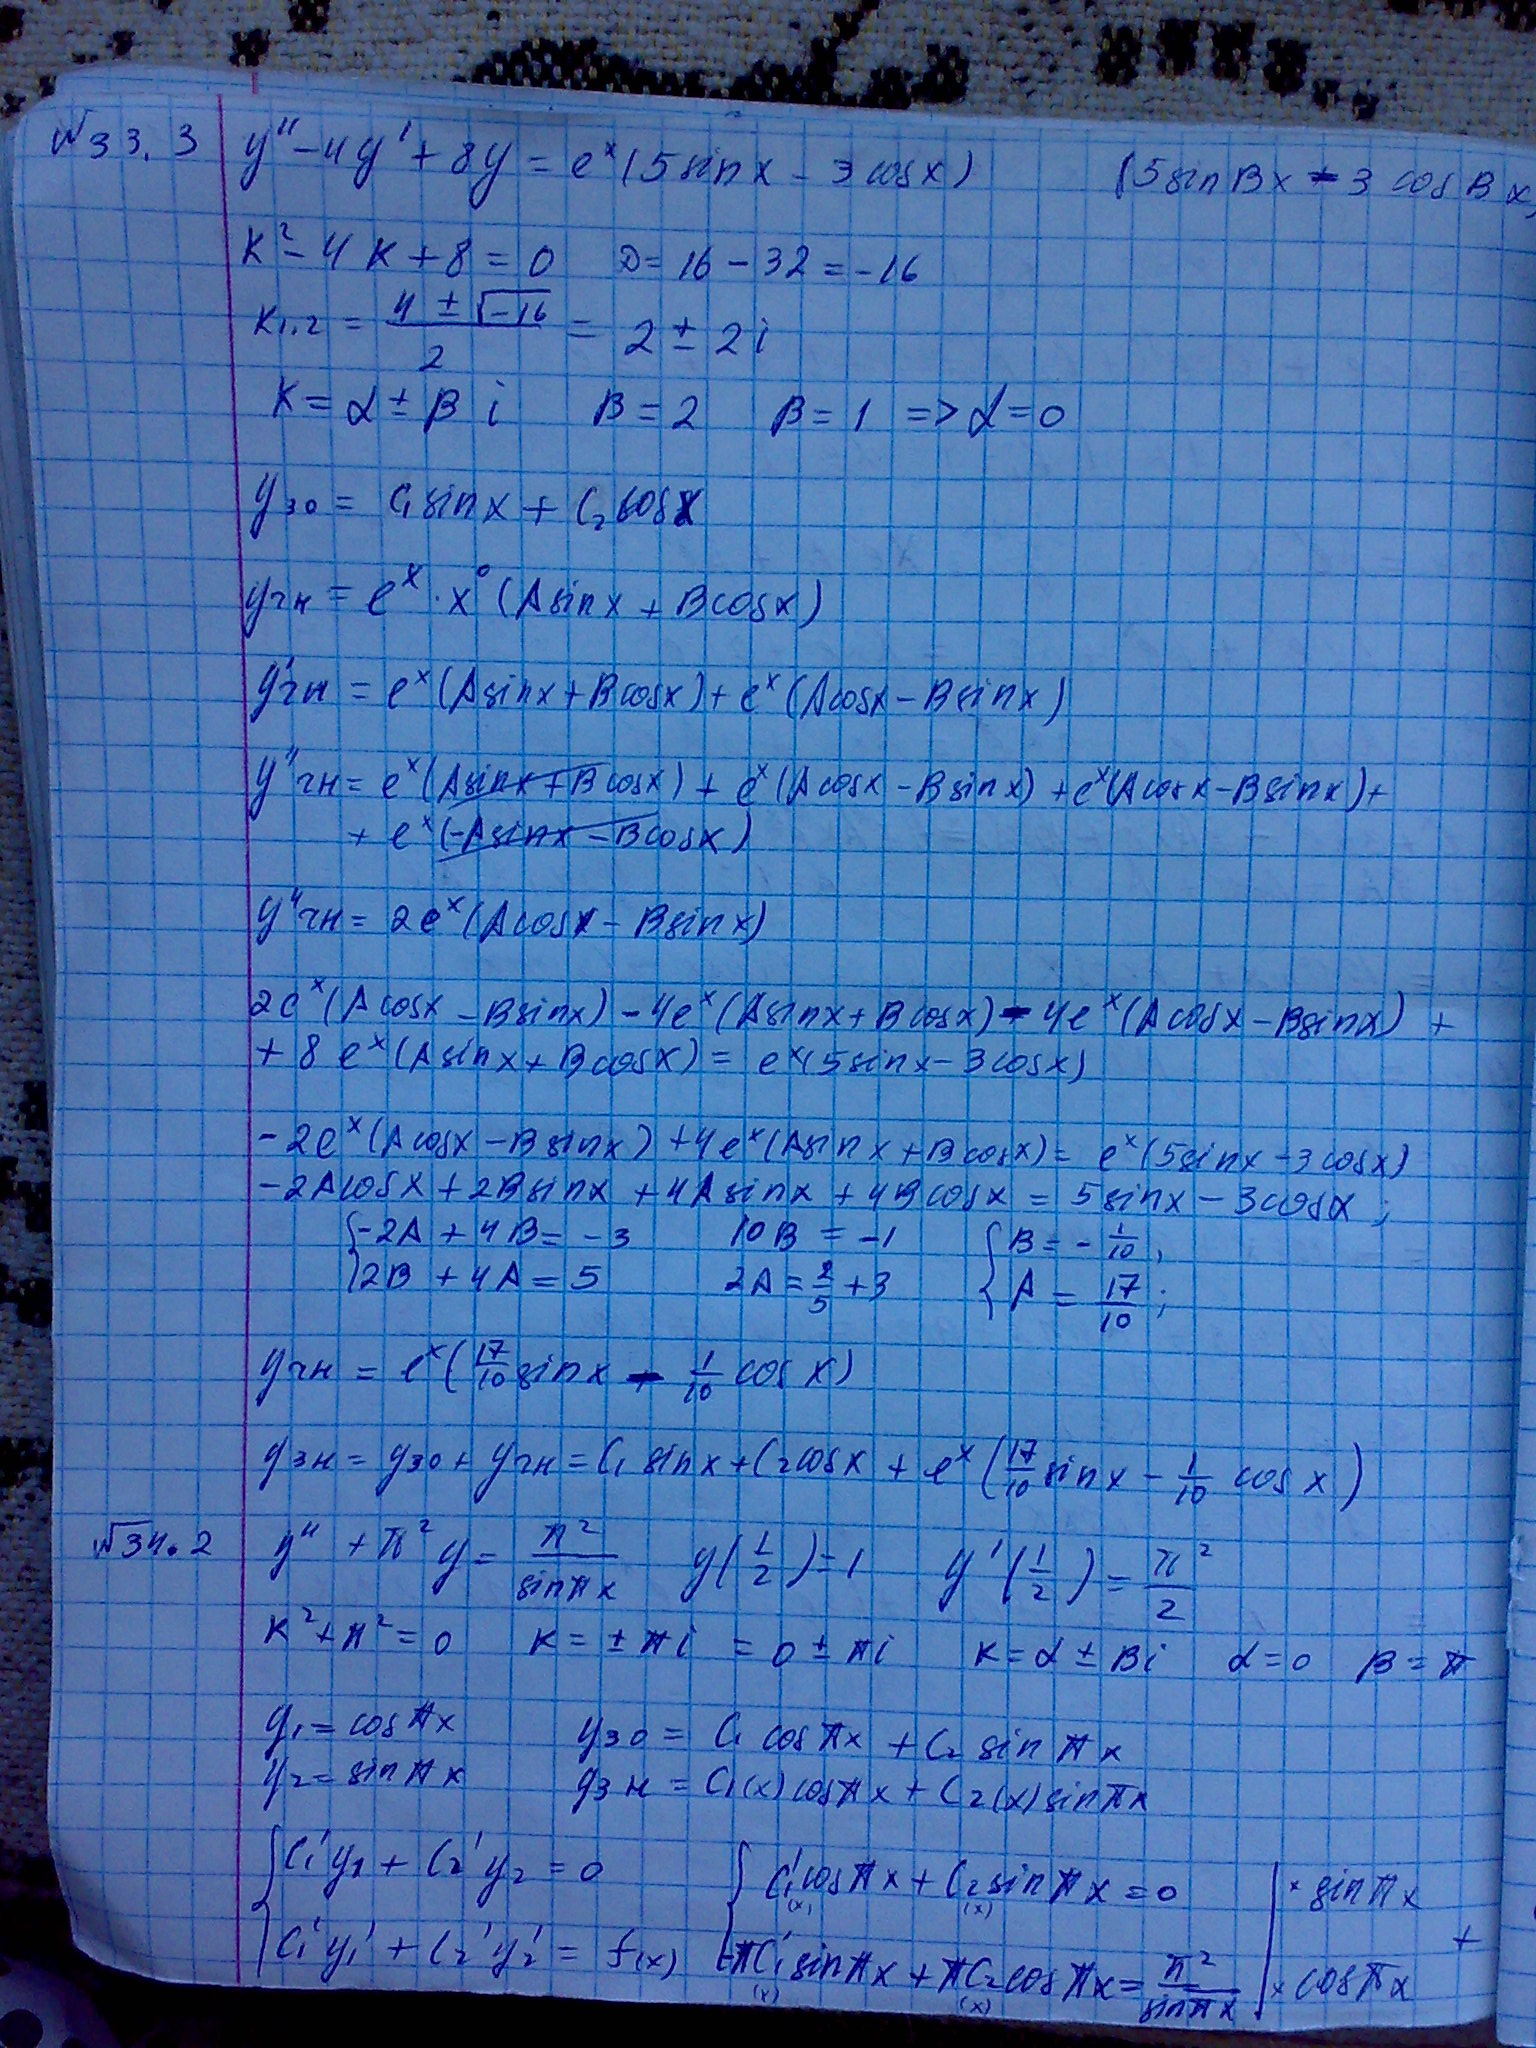 №33.3 y'' - 4y' + 8y = e^x (5 sin x - 3 cos x) (5 sin Bx - 3 cos Bx)
K² - 4K + 8 = 0 D = 16 - 32 = -16
K₁,₂ = (4 ± √-16)/2 = 2 ± 2i
K = α ± β i β = 2 β = 1 => α = 0
yзо = C₁ sin x + C₂ cos x
yчн = e^x · x⁰ (A sin x + B cos x)
y'чн = e^x (A sin x + B cos x) + e^x (A cos x - B sin x)
y''чн = e^x (A sin x + B cos x) + e^x (A cos x - B sin x) + e^x (A cos x - B sin x) +
+ e^x (-A sin x - B cos x)
y''чн = 2e^x (A cos x - B sin x)
2e^x (A cos x - B sin x) - 4e^x (A sin x + B cos x) - 4e^x (A cos x - B sin x) +
+ 8 e^x (A sin x + B cos x) = e^x (5 sin x - 3 cos x)
-2e^x (A cos x - B sin x) + 4e^x (A sin x + B cos x) = e^x (5 sin x - 3 cos x)
-2A cos x + 2B sin x + 4A sin x + 4B cos x = 5 sin x - 3 cos x ;
{ -2A + 4B = -3 10B = -1 { B = - 1/10 ,
2B + 4A = 5 2A = 2/5 + 3 A = 17/10 ;
yчн = e^x (17/10 sin x - 1/10 cos x)
yзн = yзо + yчн = C₁ sin x + C₂ cos x + e^x (17/10 sin x - 1/10 cos x)
№34.2 y'' + π² y = π²/sin πx y(1/2) = 1 y'(1/2) = π²/2
K² + π² = 0 K = ± πi = 0 ± πi K = α ± Bi α = 0 B = π
y₁ = cos πx yзо = C₁ cos πx + C₂ sin πx
y₂ = sin πx yзн = C₁(x) cos πx + C₂(x) sin πx
{ C₁' y₁ + C₂' y₂ = 0 { C₁'(x) cos πx + C₂'(x) sin πx = 0 | · sin πx
C₁' y₁' + C₂' y₂' = f(x) -πC₁'(x) sin πx + πC₂'(x) cos πx = π²/sin πx | × cos πx +